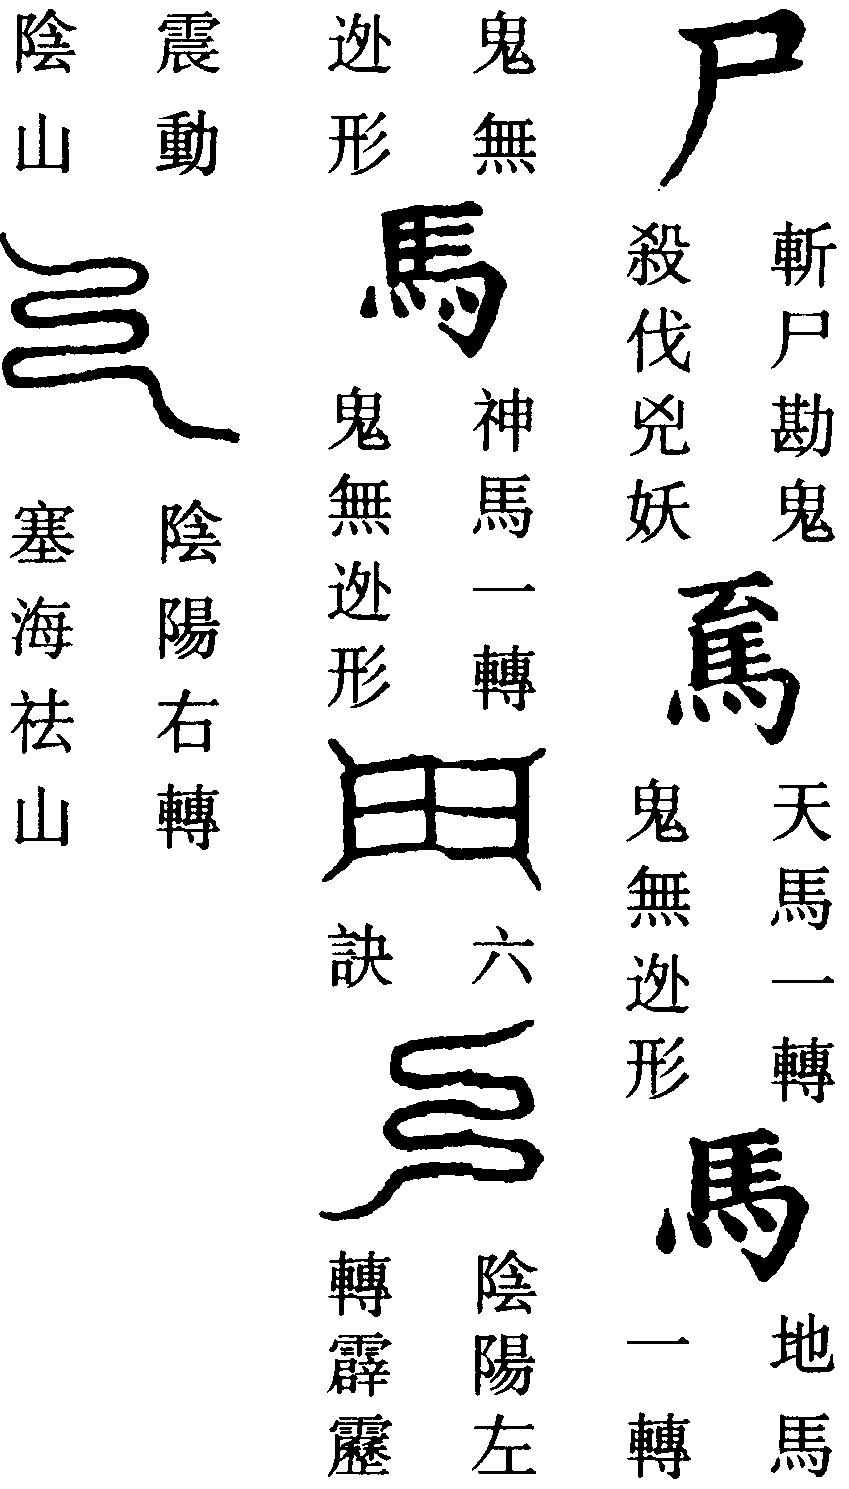 尸
斬尸勘鬼
殺伐兇妖
天馬一轉
鬼無迯形
馬
地馬
一轉
鬼無
迯形
馬
神馬一轉
鬼無迯形
六
訣
陰陽左
轉霹靂
震動
陰山
陰陽右轉
塞海祛山